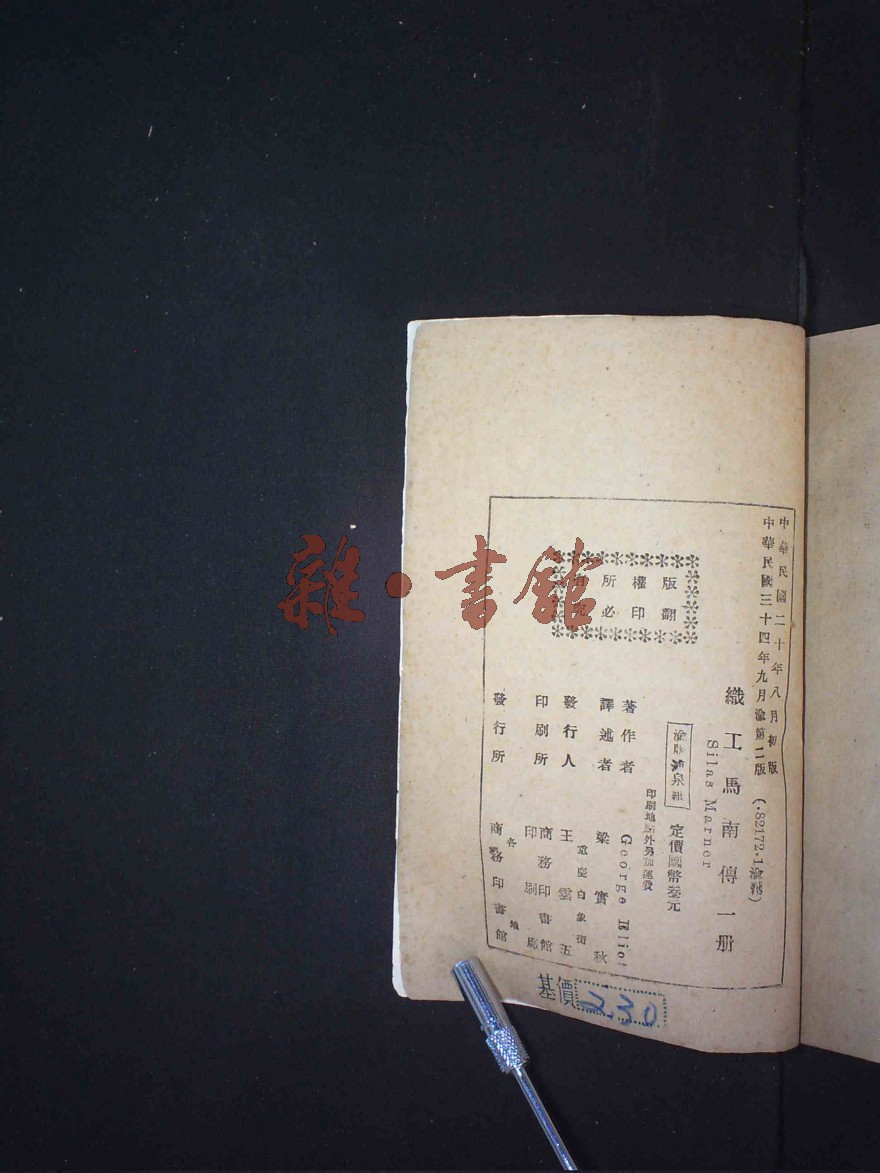 中華民國二十年八月初版
中華民國三十四年九月渝第二版
(.82172.1渝滬)
織工馬南傳一册
Silas Marner
定價國幣叁元
印刷地點外另加運費
著作者 George Eliot
譯述者 梁實秋
發行人 王雲五
重慶白象街
印刷所 商務印書館
印刷廠
發行所 各地
商務印書館
版權所有
翻印必究
基價 2.30
雜·書館